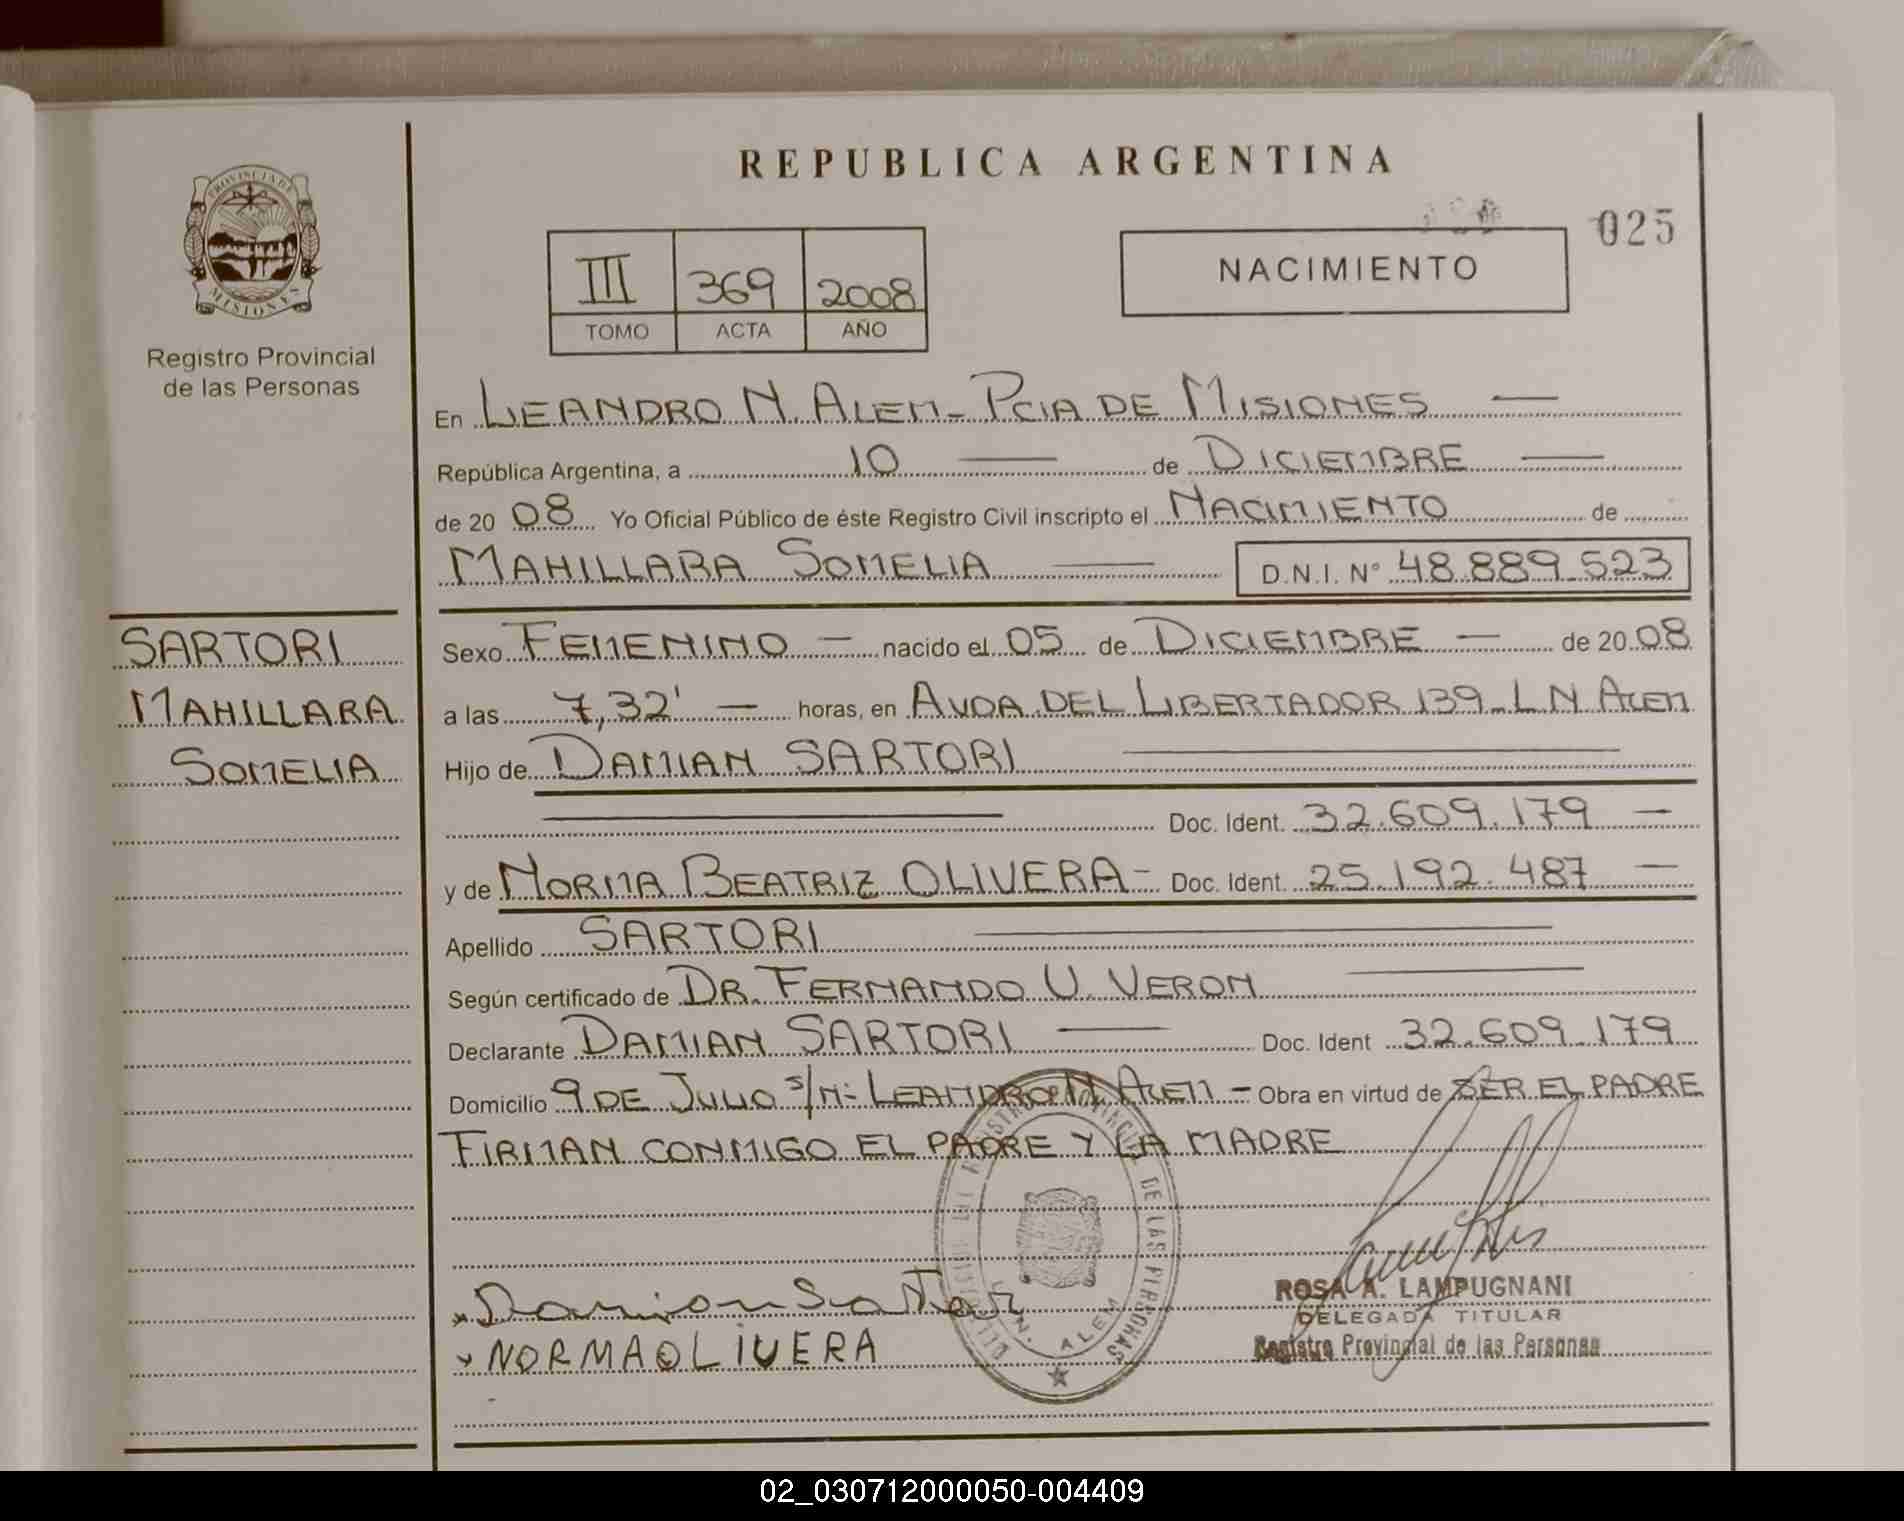 REPUBLICA ARGENTINA
025
NACIMIENTO
III 369 2008
TOMO ACTA AÑO
PROVINCIA DE
MISIONES
Registro Provincial
de las Personas
En LEANDRO N. ALEM - PCIA DE MISIONES —
República Argentina, a 10 — de DICIEMBRE —
de 20 08 Yo Oficial Público de éste Registro Civil inscripto el NACIMIENTO de
MAHILLARA SOMELIA — D.N.I. N° 48.889.523
SARTORI
MAHILLARA
SOMELIA
Sexo FEMENINO — nacido el 05 de DICIEMBRE — de 20 08
a las 7,32' — horas, en AVDA DEL LIBERTADOR 139 - L N ALEM
Hijo de DAMIAN SARTORI —
— Doc. Ident. 32.609.179 —
y de NORMA BEATRIZ OLIVERA - Doc. Ident. 25.192.487 —
Apellido SARTORI —
Según certificado de DR. FERNANDO U. VERON —
Declarante DAMIAN SARTORI — Doc. Ident 32.609.179
Domicilio 9 DE JULIO S/N - LEANDRO N ALEM - Obra en virtud de SER EL PADRE
FIRMAN CONMIGO EL PADRE Y LA MADRE
REGISTRO PROVINCIAL DE LAS PERSONAS
L. N. ALEM
Damian Sartori
NORMA OLIVERA
ROSA A. LAMPUGNANI
DELEGADA TITULAR
Registro Provincial de las Personas
02_030712000050-004409